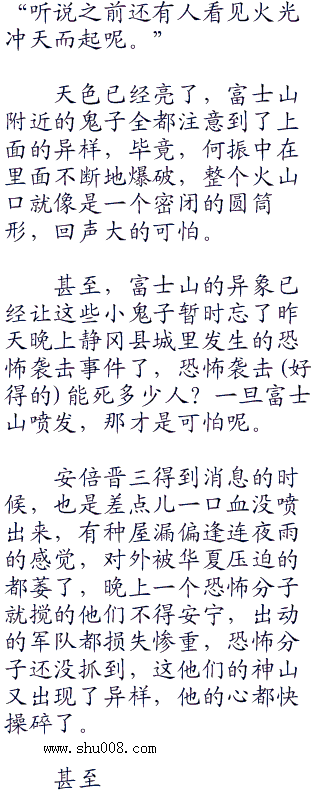 “听说之前还有人看见火光
冲天而起呢。”
天色已经亮了，富士山
附近的鬼子全都注意到了上
面的异样，毕竟，何振中在
里面不断地爆破，整个火山
口就像是一个密闭的圆筒
形，回声大的可怕。
甚至，富士山的异象已
经让这些小鬼子暂时忘了昨
天晚上静冈县城里发生的恐
怖袭击事件了，恐怖袭击(好
得的)能死多少人？一旦富士
山喷发，那才是可怕呢。
安倍晋三得到消息的时
候，也是差点儿一口血没喷
出来，有种屋漏偏逢连夜雨
的感觉，对外被华夏压迫的
都萎了，晚上一个恐怖分子
就搅的他们不得安宁，出动
的军队都损失惨重，恐怖分
子还没抓到，这他们的神山
又出现了异样，他的心都快
操碎了。
www.shu008.com
甚至